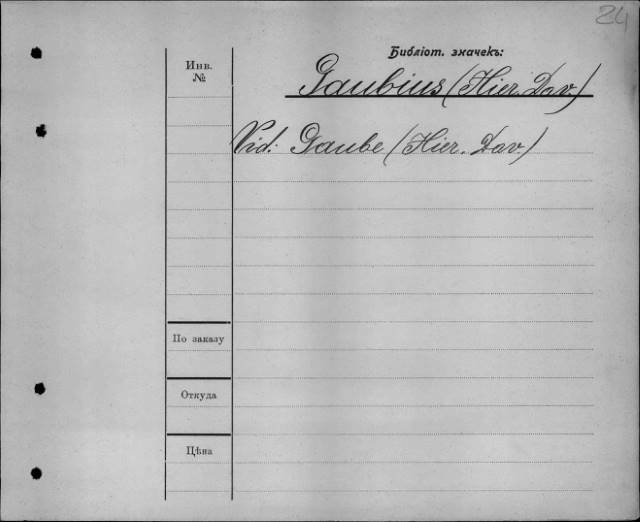 24
Библіот. значекъ:
Инв.
№
Gaubius (Hier. Dav.)
Vid: Gaube (Hier. Dav.)
По заказу
Откуда
Цѣна